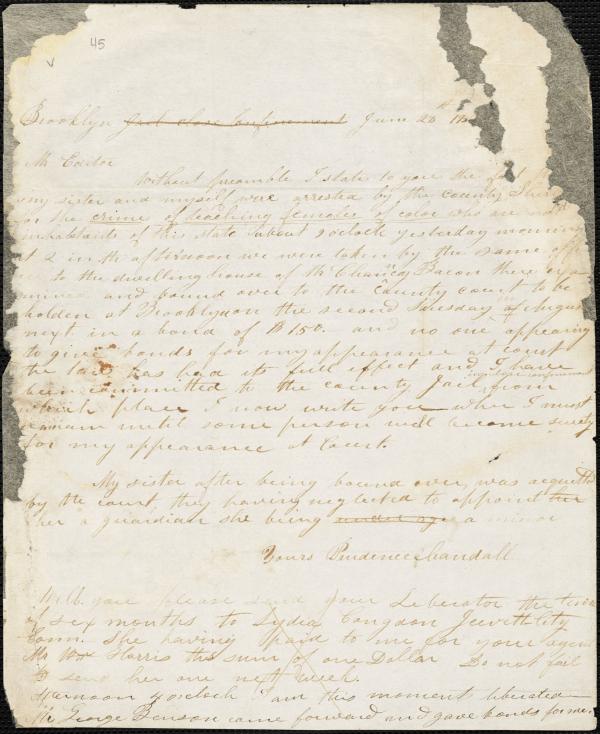 45
v
Brooklyn Jail close Confinement June 28th
Mr Editor
Without preamble I state to you the fact
my sister and myself were arrested by the County
for the crime of teaching females of color who are not
inhabitants of this state about o'clock yesterday morning
at 2 in the afternoon we were taken by the same
to the dwelling house of Mr Chancey Bacon there
and bound over to the County court to be
holden at Brooklyn on the second Tuesday of
next in a bond of $150. and no one appearing
to give bonds for my appearance at court
the law has had its full effect and I have
been committed to the county Jail from
which place I now write you wher I must
remain until some person will become surety
for my appearance at Court.
My sister after being bound over, was acquitted
by the court they having neglected to appoint her
her a guardian she being under age a minor
Yours Prudence Crandall
Will you please send your Liberator the term
of six months to Lydia Congdon Jewett City
Conn. She having paid to me for your agent
Mr Wm Harris the sum of one Dollar Do not fail
to send her one next week.
Afternoon o'clock I am this moment liberated
Mr George Benson came forward and gave bonds for me.